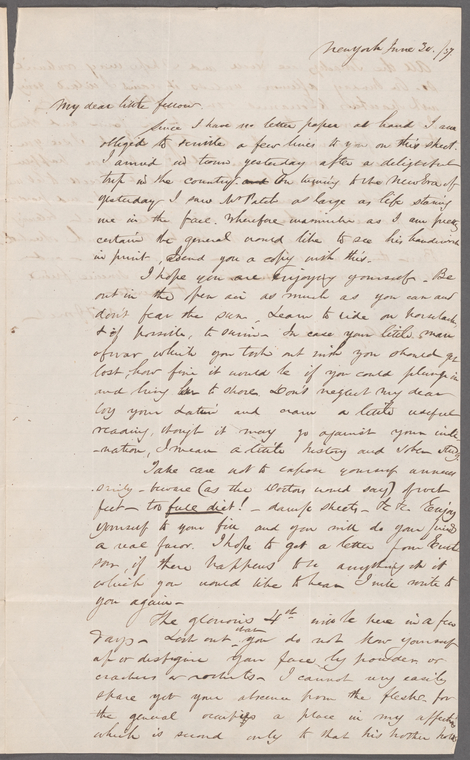 New York June 30. /37
My dear little fellow
Since I have no letter paper at hand I am
obliged to scribble a few lines to you on this sheet.
I arrived in town yesterday after a delightful
trip in the country and on turning to the New Era of
yesterday I saw Mr Patch as large as life staring
me in the face. Wherefore inasmuch as I am pretty
certain the general would like to see his handiwork
in print, I send you a copy with this.
I hope you are enjoying yourself. Be
out in the open air as much as you can and
don't fear the sun, Learn to ride on horseback
& if possible, to swim. In case your little man
of war which you took out with you should get
lost, how fine it would be if you could plunge in
and bring her to shore. Don't neglect my dear
boy your Latin and a little useful
reading, though it may go against your incli
-nation, I mean a little history and sober study
Take care not to expose yourself unneces
sarily - beware (as the Doctors would say) of wet
feet - too full diet! - damp sheets - &c &c. Enjoy
yourself to your fill and you will do your friend
a real favor. I hope to get a letter from
soon, if there happens to be anything in it
which you would like to hear I will write to
you again -
The glorious 4th will be here in a few
days - Look out dear you do not blow yourself
up or disfigure your face by powder or
crackers or rockets - I cannot very easily
spare yet your absence from the flesh - for
the general occupies a place in my affection
which is second only to that his mother holds